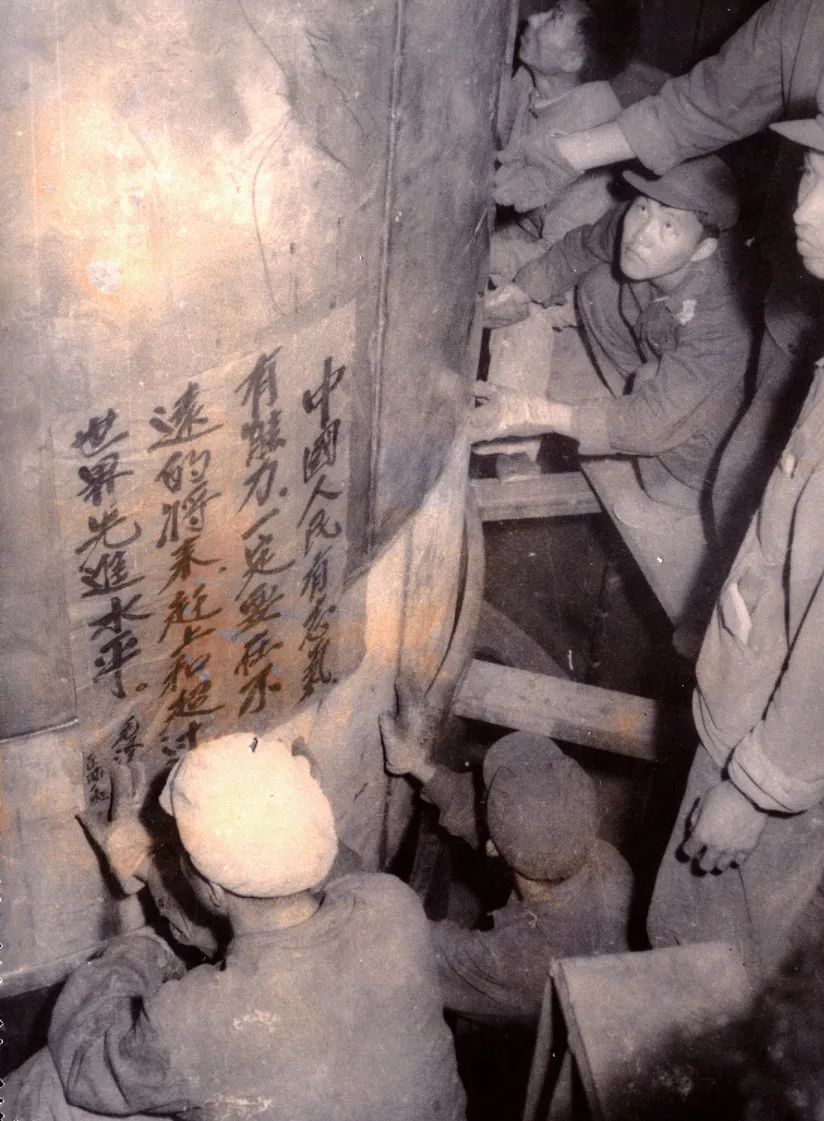 中國人民有志氣,
有能力,一定要在不
遠的將来赶上和超过
世界先進水平。